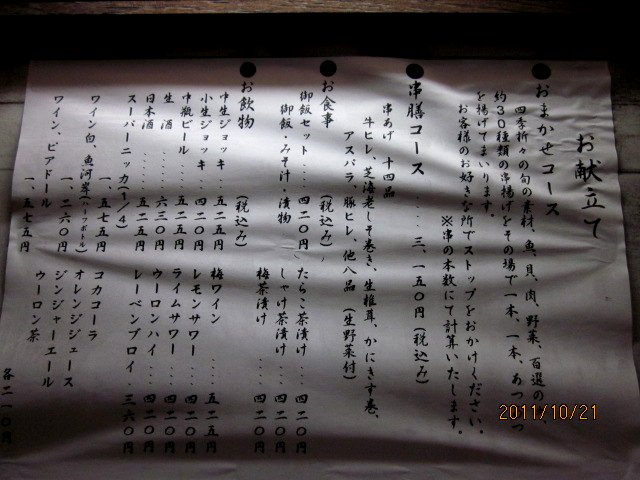 お献立て
●おまかせコース
四季折々の旬の素材、魚、貝、肉、野菜、百選の
約30種類の串揚げをその場で一本、一本、あつあつ
を揚げてまいります。
お客様のお好きな所でストップをおかけください。
※串の本数にて計算いたします。
●串膳コース ..... 三、一五〇円(税込み)
串あげ 十四品
牛ヒレ、芝海老しそ巻き、生椎茸、かにきす巻、
アスパラ、豚ヒレ、他八品(生野菜付)
●お食事 (税込み)
御飯セット....四二〇円
御飯・みそ汁・漬物
たらこ茶漬け....四二〇円
しゃけ茶漬け....四二〇円
梅茶漬け....四二〇円
●お飲物 (税込み)
中生ジョッキ...五二五円
小生ジョッキ...四二〇円
中瓶ビール....五二五円
生酒......六三〇円
日本酒.....五二五円
スーパーニッカ(1/4)
...一、五七五円
ワイン白、魚河岸(ハーフボトル)
..一、二六〇円
ワイン、ピアドール
..一、五七五円
梅ワイン....五二五円
レモンサワー....四二〇円
ライムサワー....四二〇円
ウーロンハイ....四二〇円
レーベンブロイ..三六〇円
コカコーラ
オレンジジュース
ジンジャーエール
ウーロン茶
各二一〇円
2011/10/21